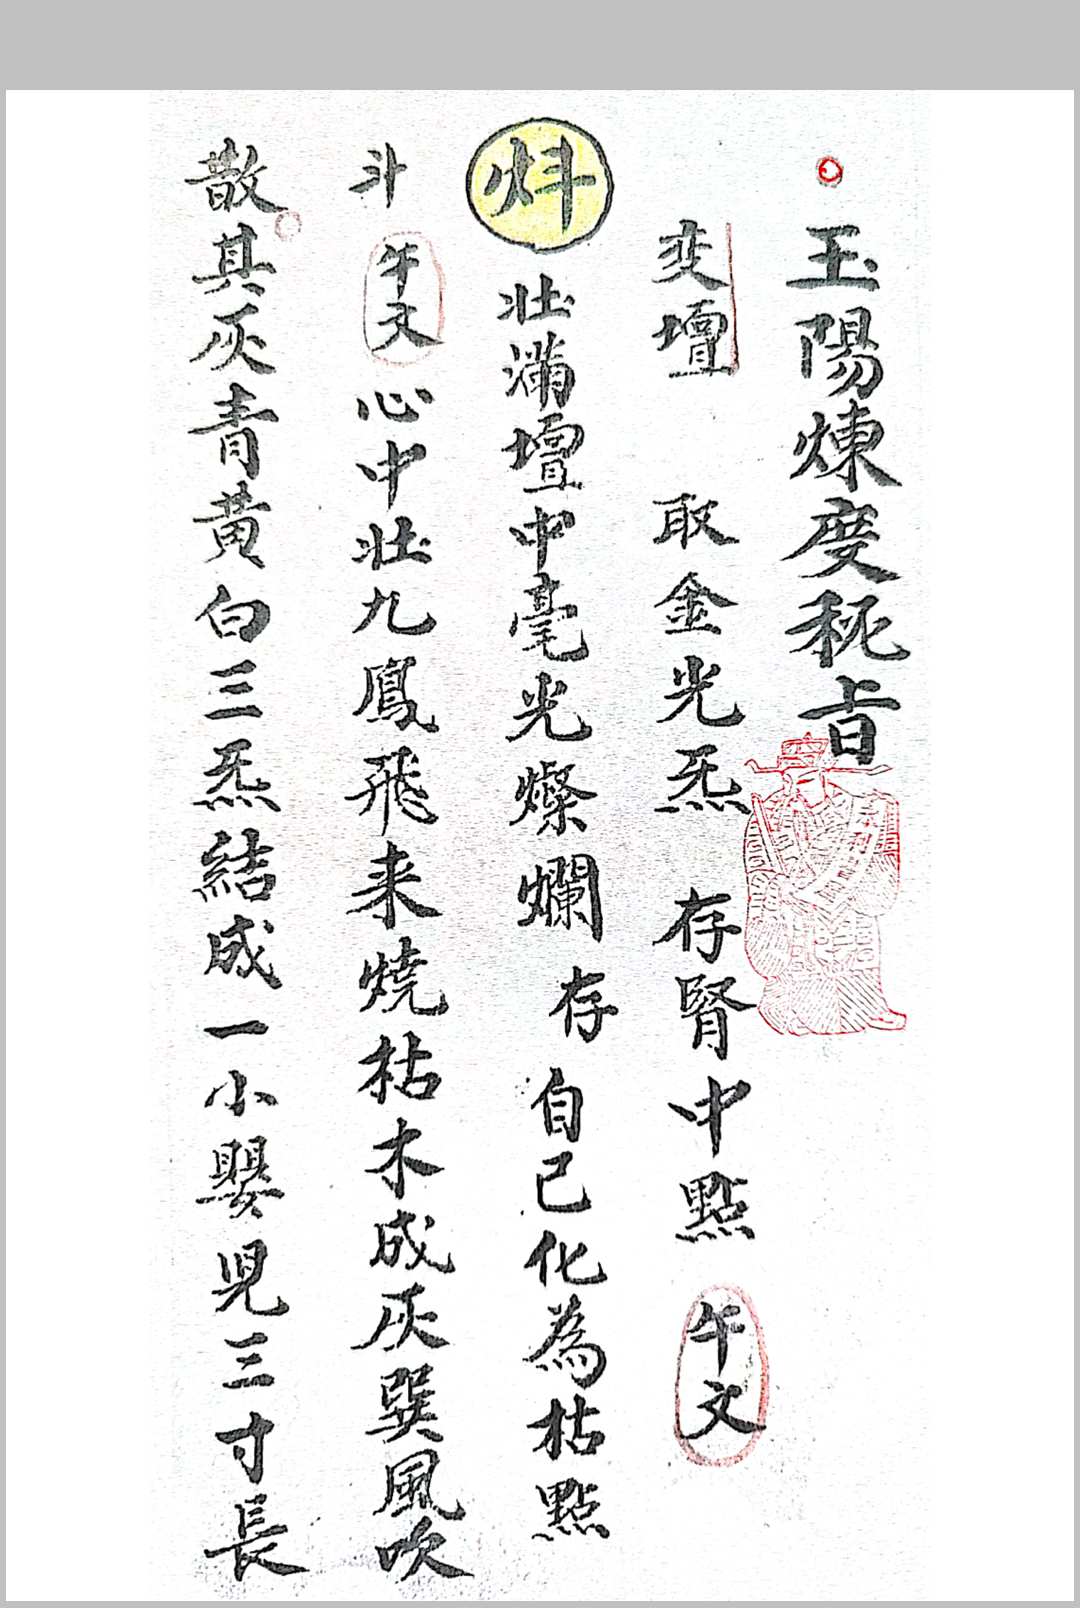 玉陽煉度秘旨
变壇 取金光炁 存腎中點 午文
炓 壮滿壇中毫光燦爛 存自己化為枯點
斗 午文 心中壮九鳳飛来燒枯木成灰巽風吹
散其灰青黃白三炁結成一小嬰児三寸長